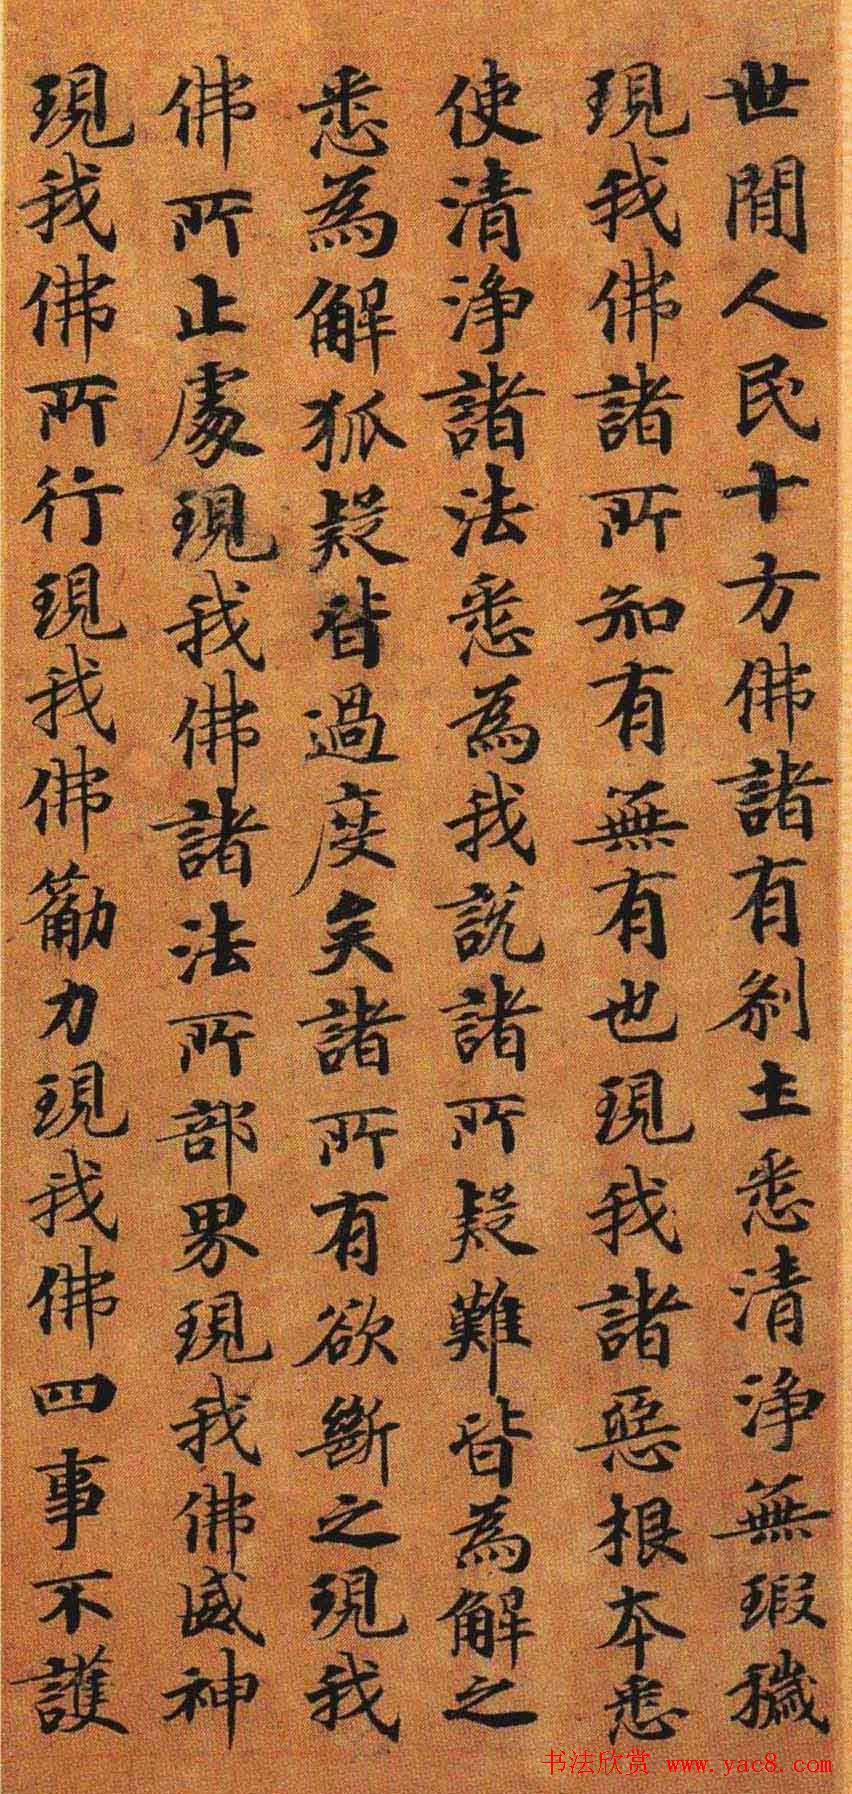 世閒人民十方佛諸有剎土悉清淨無瑕穢
現我佛諸所知有無有也現我諸惡根本悉
使清淨諸法悉為我說諸所疑難皆為解之
悉為解狐疑皆過度矣諸所有欲斷之現我
佛所止處現我佛諸法所部界現我佛威神
現我佛所行現我佛勸力現我佛四事不護
书法欣赏 www.yac8.com